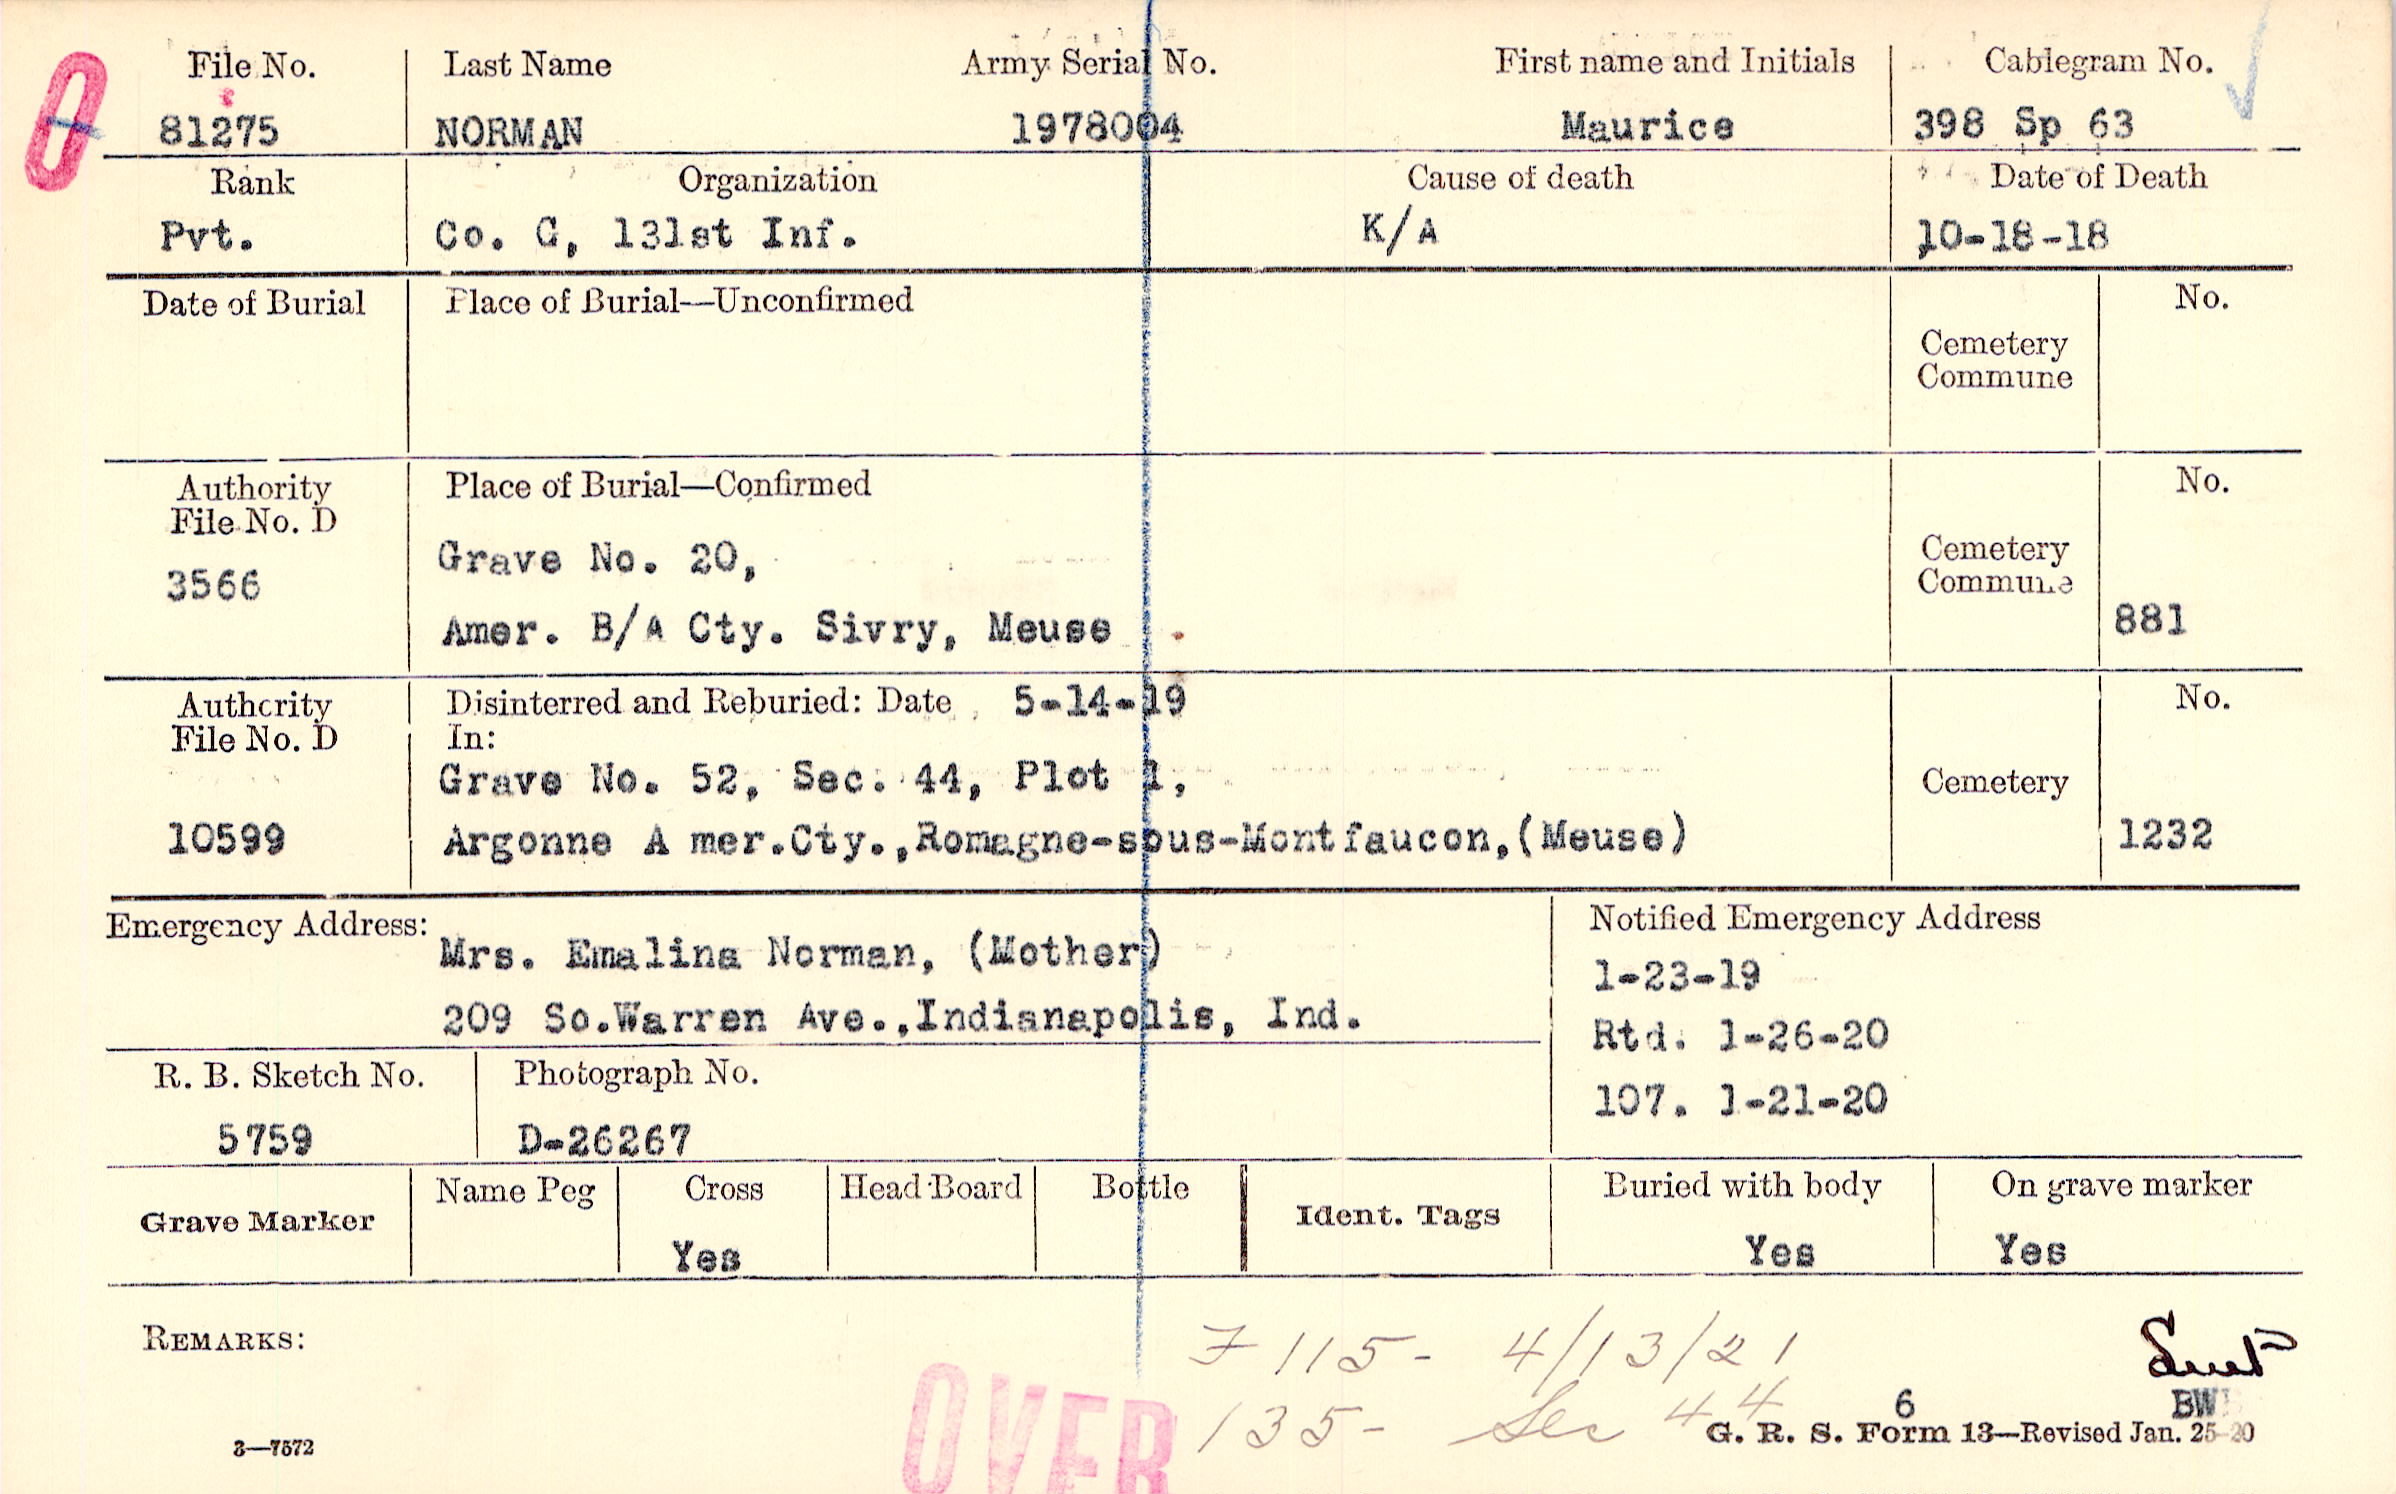 File No. Last Name Army Serial No. First name and Initials Cablegram No.
81275 NORMAN 1978004 Maurice 398 Sp 63
Rank Organization Cause of death Date of Death
Pvt. Co. G, 131st Inf. K/A 10-18-18
Date of Burial Place of Burial—Unconfirmed No.
Cemetery
Commune
Authority Place of Burial—Confirmed No.
File No. D
3566 Grave No. 20, Cemetery
Commune
Amer. B/A Cty. Sivry, Meuse 881
Authority Disinterred and Reburied: Date 5-14-19 No.
File No. D In:
Grave No. 52, Sec. 44, Plot 1, Cemetery
10599 Argonne A mer.Cty.,Romagne-sous-Montfaucon,(Meuse) 1232
Emergency Address: Notified Emergency Address
Mrs. Emalina Norman, (Mother) 1-23-19
209 So.Warren Ave.,Indianapolis, Ind. Rtd. 1-26-20
R. B. Sketch No. Photograph No. 107. 1-21-20
5759 D-26267
Grave Marker Name Peg Cross Head Board Bottle Ident. Tags Buried with body On grave marker
Yes Yes Yes
REMARKS: F 115- 4/13/21
OVER 135- Sec 44 6
3—7572 G. R. S. Form 13—Revised Jan. 25-20